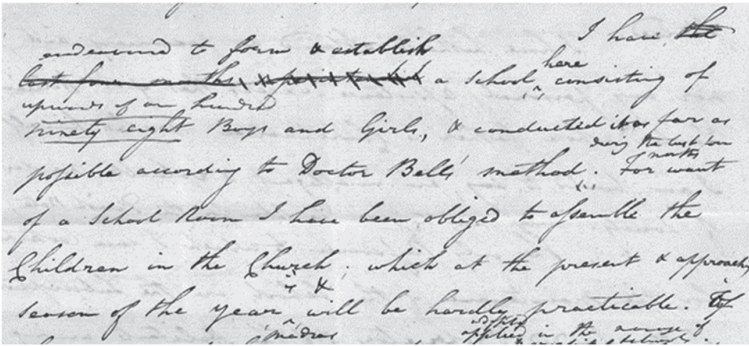 I have the
endeavoured to form & establish
last four months a School here consisting of
upwards of one hundred
ninety eight Boys and Girls, & conducted it as far as
during the last four months
possible according to Doctor Bell's method. For want
of a School Room I have been obliged to assemble the
Children in the Church, which at the present & approach
season of the year & will be hardly practicable. If
Madras applied in the